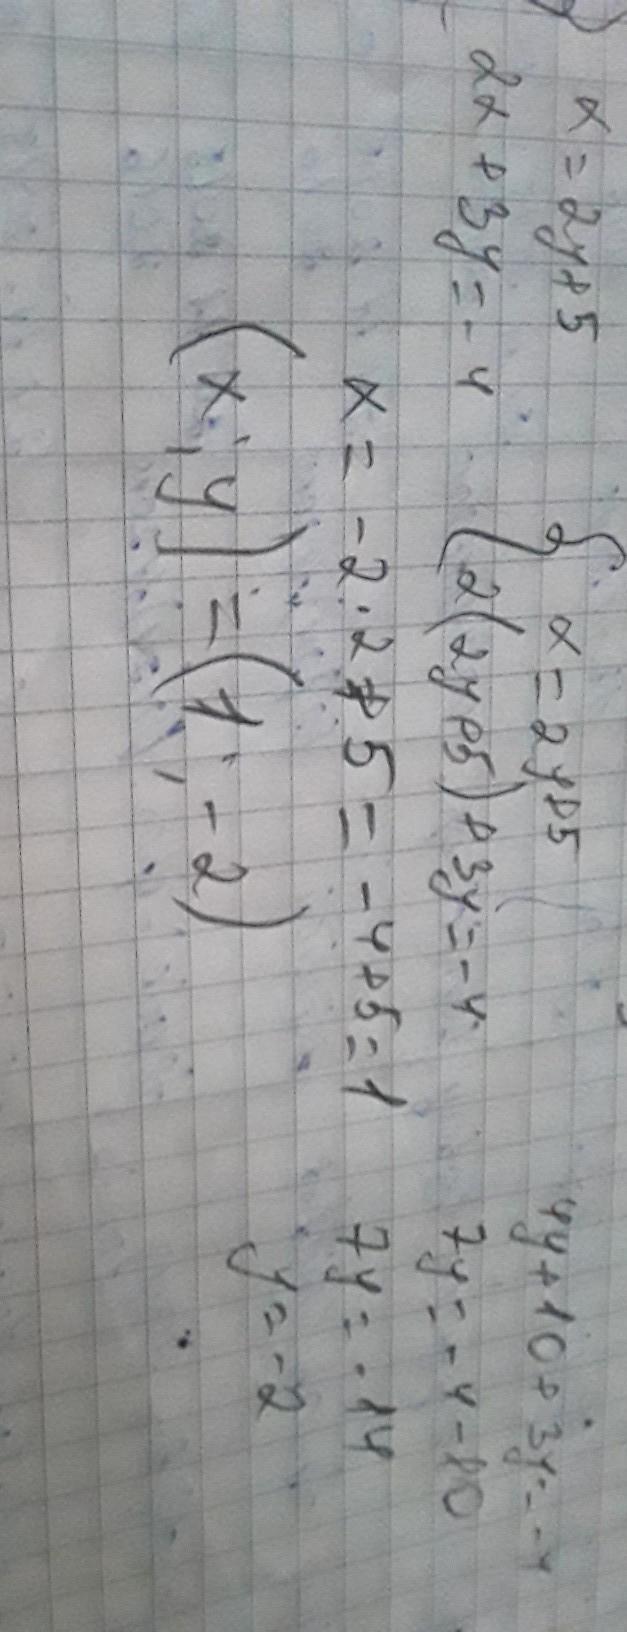 x = 2y+5
2x+3y=-4
{ x = 2y+5
2(2y+5)+3y=-4
4y+10+3y=-4
7y=-4-10
7y=-14
y=-2
x = -2·2+5 = -4+5=1
(x;y) = (1; -2)